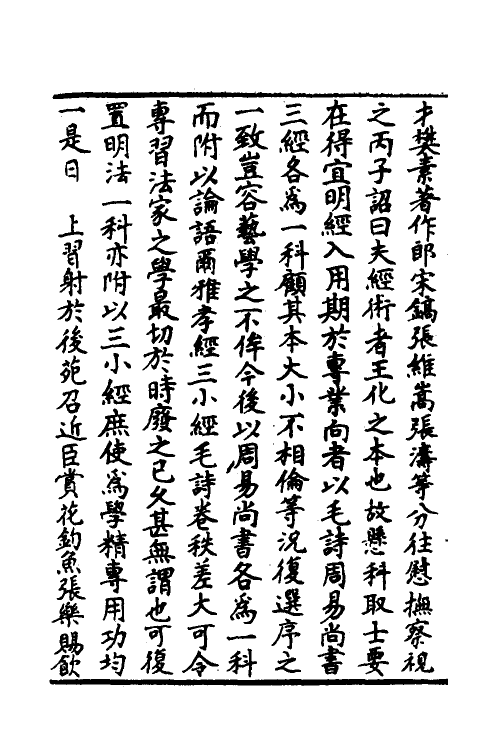 才樊素著作郎宋鎬張維嵩張濤等分往慰撫察視
之丙子詔曰夫經術者王化之本也故懸科取士要
在得宜明經入用期於專業向者以毛詩周易尚書
三經各為一科顧其本大小不相倫等況復選序之
一致豈容藝學之不侔今後以周易尚書各為一科
而附以論語爾雅孝經三小經毛詩卷秩差大可令
專習法家之學最切於時廢之已久甚無謂也可復
置明法一科亦附以三小經庶使為學精專用功均
一是日　上習射於後苑召近臣賞花釣魚張樂賜飲